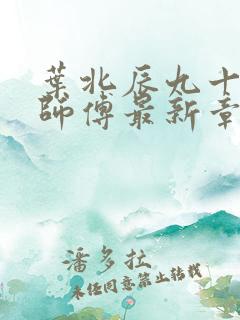 葉北辰九十
師傅最新章
潘多拉
未经同意禁止转载